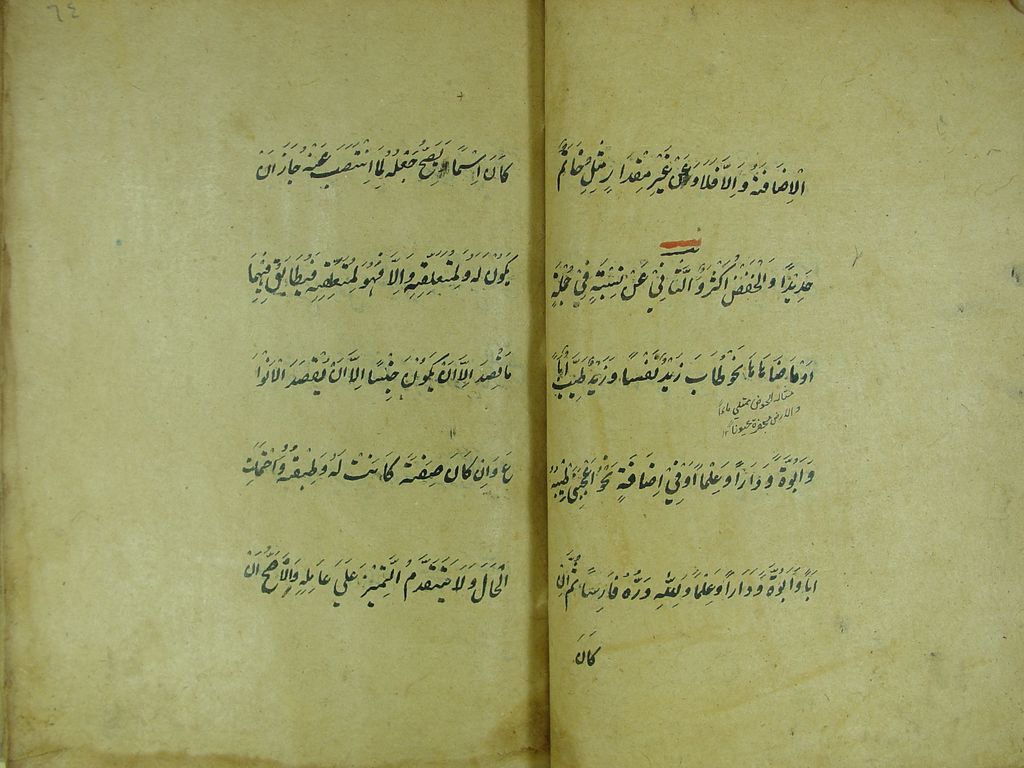 الْاِضَافَةُ وَاِلَّا فَلَا وَعَنْ غَيْرِ مِقْدَارٍ مِثْلِ خَاتَمٌ
حَدِيْدًا وَالْخَفْضُ اَكْثَرُ وَالثَّانِيْ عَنْ نِسْبَةٍ فِيْ جُمْلَةٍ
اَوْ مَا ضَاهَاهَا نَحْوُ طَابَ زَيْدٌ نَفْسًا وَزَيْدٌ طَيِّبٌ اَبًا
مثاله الحوض ممتلي ماءًا
والارض مفجرة عيونا ١٢
وَاُبُوَّةً وَدَارًا وَعِلْمًا اَوْ فِيْ اِضَافَةٍ نَحْوُ اَعْجَبَنِيْ طِيْبُهُ
اَبًا وَاُبُوَّةً وَدَارًا وَعِلْمًا وَلِلّٰهِ دَرُّهُ فَارِسًا ثُمَّ اِنْ
كَانَ
٦٤
كَانَ اِسْمًا يَصِحُّ جَعْلُهُ لِمَا انْتَصَبَ عَنْهُ جَازَ اَنْ
يَكُوْنَ لَهُ وَلِمُتَعَلِّقِهِ وَاِلَّا فَهُوَ لِمُتَعَلِّقِهِ فَيُطَابِقُ فِيْهِمَا
مَا قُصِدَ اِلَّا اَنْ يَكُوْنَ جِنْسًا اِلَّا اَنْ يُقْصَدَ الْاَنْوَا
عَ وَاِنْ كَانَ صِفَةً كَانَتْ لَهُ وَطِبْقَهُ وَاحْتَمَلَتِ
الْحَالَ وَلَا يَتَقَدَّمُ التَّمْيِيْزُ عَلَيَ عَامِلِهِ وَالْاَصَحُّ اَنْ